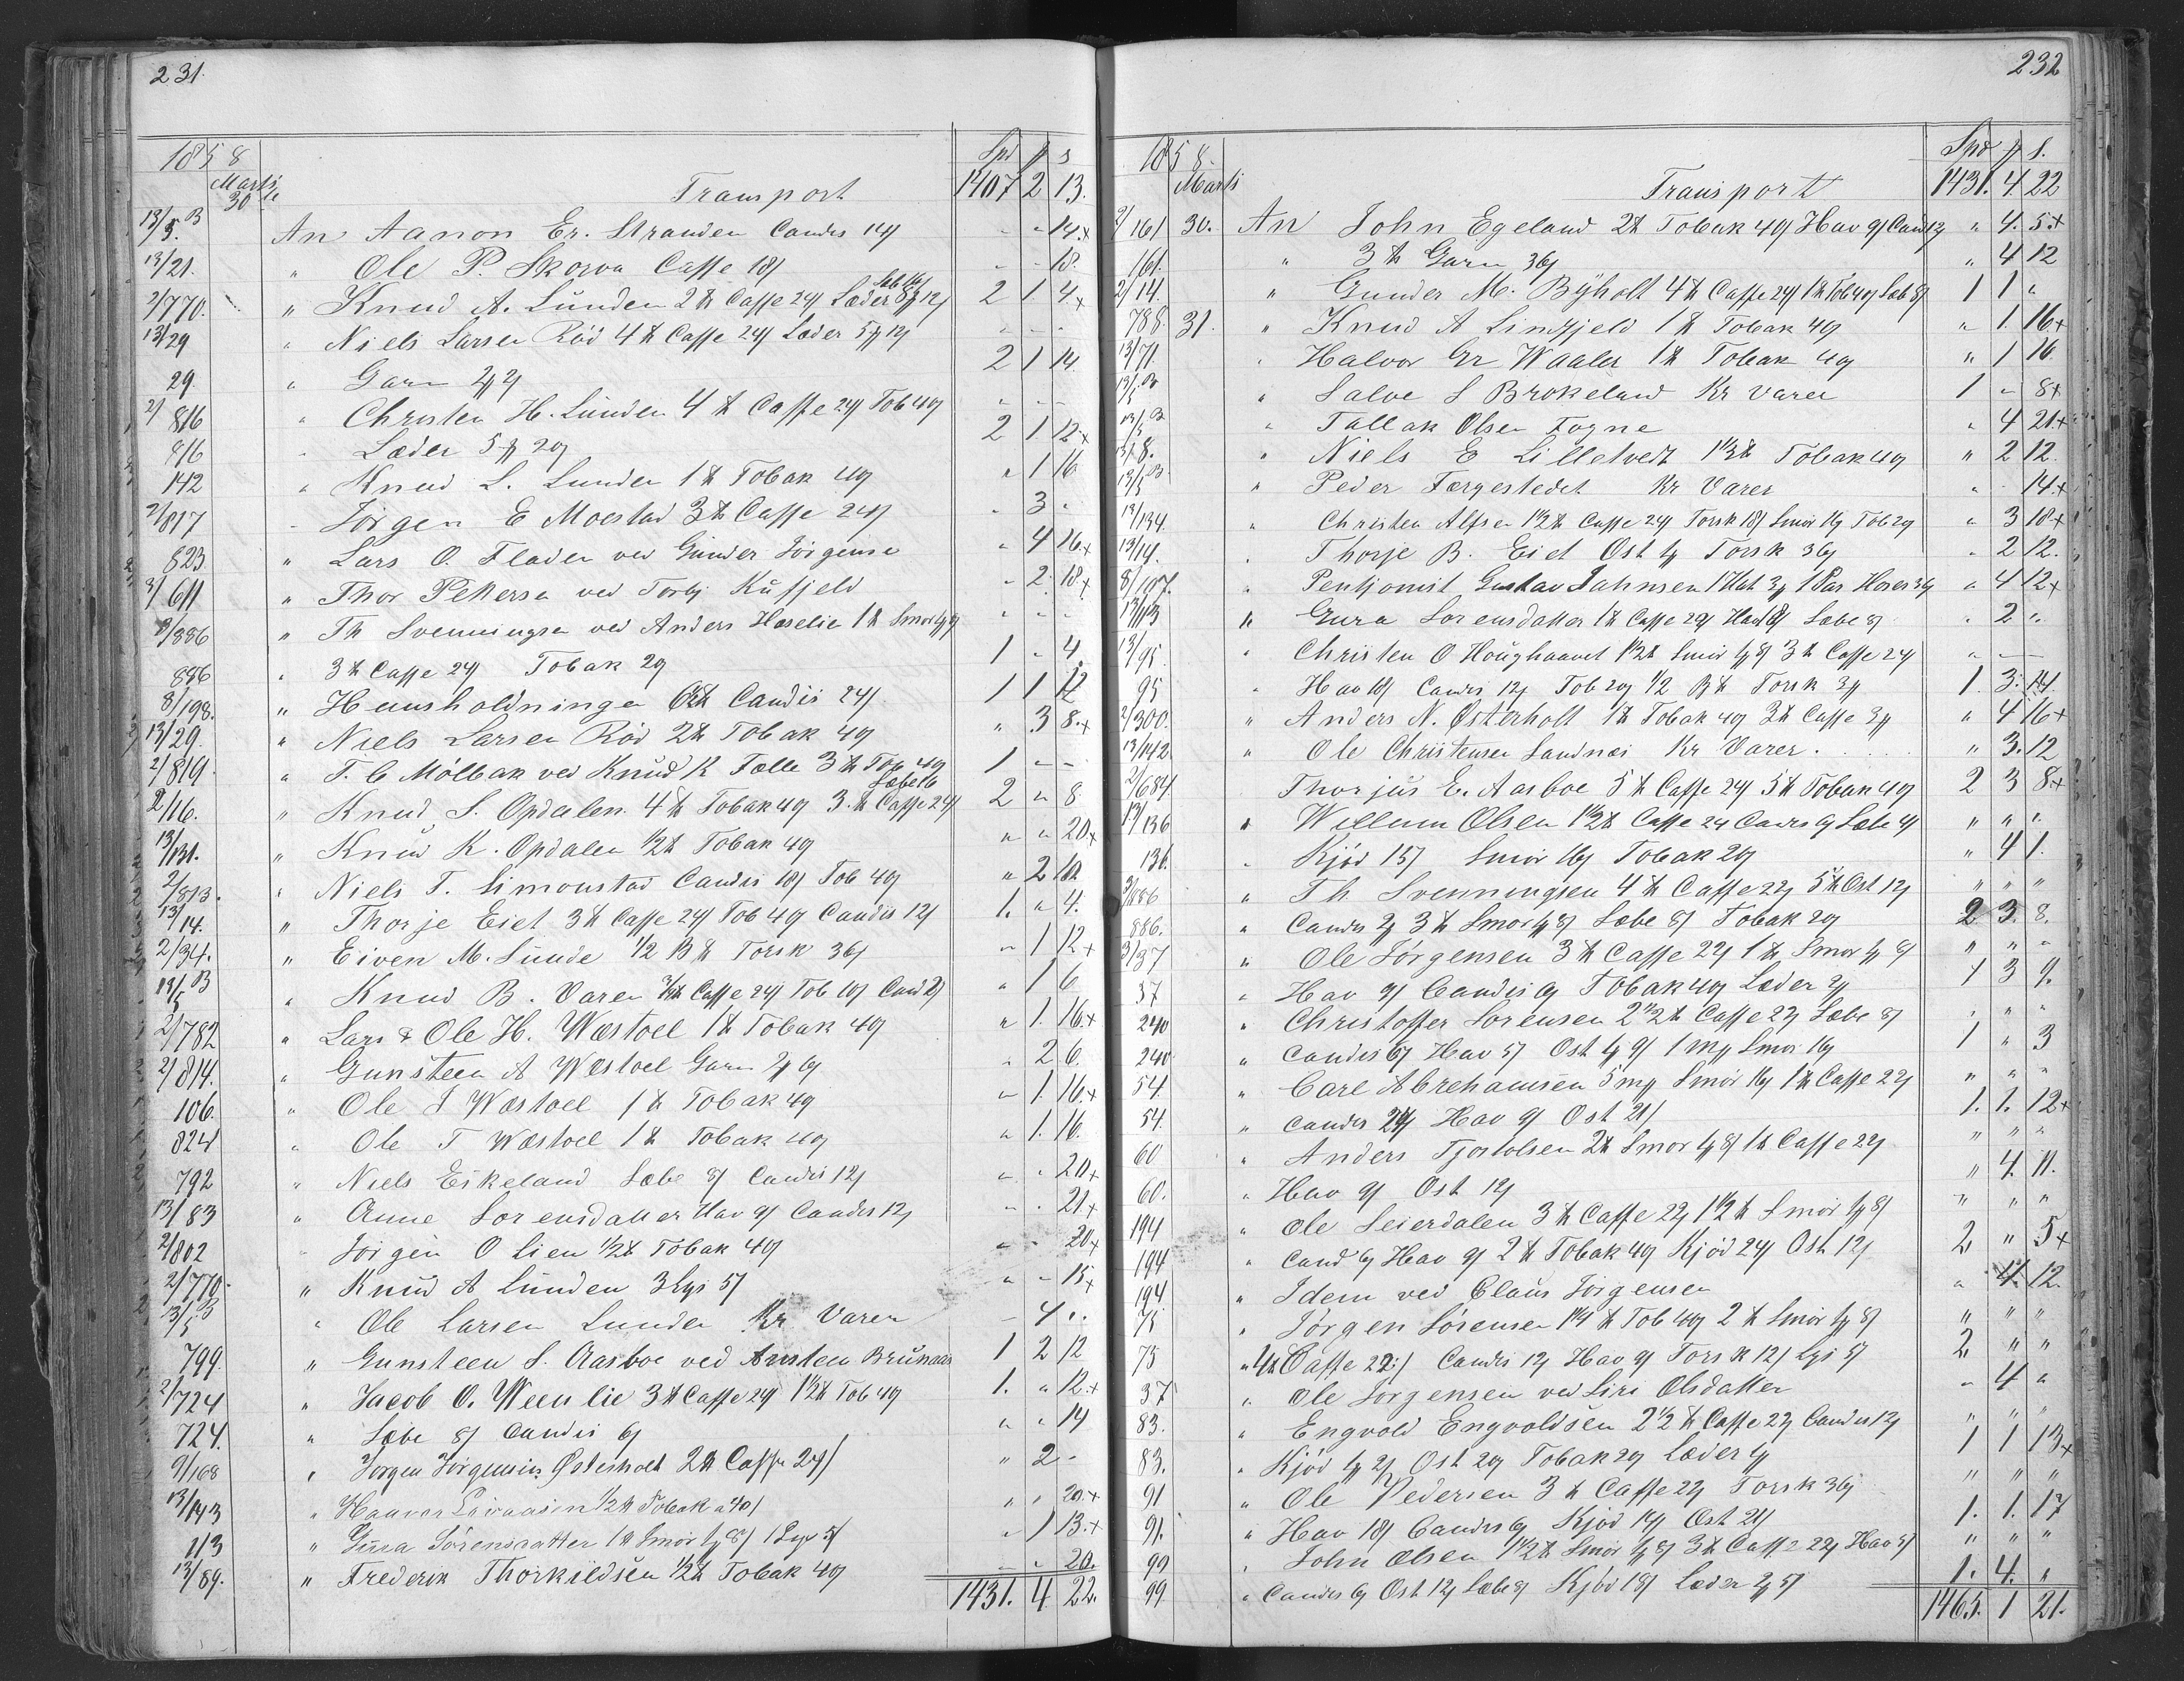 231.
1858 Spd # s
Martii 30te Transport 1407 2 13.
13/5.B An Aanon Er. Stranden Candis 14/ " " 14.+
13/21. " Ole P. Skorva Caffe 18/ " " 18.
Seb 16/
2/770. " Knud A. Lunden 2 ℔ Caffe 24/ Læder 8/ 12/ 2 1. 4+
13/29 " Niels Larsen Röd 4 ℔ Caffe 24/ Læder 5 # 12/ " " "
29. " Garn 2/ 2 1 14
2/816 " Christen H. Lunden 4 ℔ Caffe 24/ Tob 40/ " " "
816 " Læder 5 # 20/ 2 1. 12+
142 " Knud L. Lunden 1 ℔ Tobak 40/ " 1 16
2/817 " Jörgen E Moestad 3 ℔ Caffe 24/ " 3 "
823 " Lars O. Fladen ved Gunder Jörgensen " 4 16.+
3/611 " Thor Pettersen ved Torbj Kufjeld " 2. 18+
3/886 " Th Svenningsen ved Anders Hæselie 1 ℔ Smör " " "
886 " 3 ℔ Caffe 24/ Tobak 20/ 1 " 4.
8/198. " Huusholdningen ℔ Candis 24/ 1 1 12
13/29. " Niels Larsen Röd 2 ℔ Tobak 40/ " 3 8.+
2/819. " T. C Mölbak ved Knud K Fælle 3 ℔ Tob 40/ 1 " "
Sæbe 16
2/16. " Knud S. Opdalen 4 ℔ Tobak 40/ 3 ℔ Caffe 24/ 2 " 8
13/131. " Knud K. Opdalen 1/2 ℔ Tobak 40/ " " 20+
2/813. " Niels T. Simonstad Candis 18/ Tob 40/ " 2 10
13/14. " Thorje Eiet 3 ℔ Caffe 24/ Tob 40/ Candis 12/ 1. " 4.
2/34. " Eiven M. Sunde 1/2 B ℔ Torsk 36/ " 1 12+
13/5 B " Knud B. Varen ℔ Caffe 24/ Tob 10/ Cand " 1 6
2/782 " Lars & Ole H. Wæstoel 1 ℔ Tobak 40/ " 1. 16.+
2/814. " Gunsteen A Wæstoel Garn " 2 6.
106. " Ole J Wæstoel 1 ℔ Tobak 40/ " 1. 16.+
824 " Ole T Wæstoel 1 ℔ Tobak 40/ " 1. 16.
792 " Niels Eikeland Sæbe 8/ Candis 12/ " " 20+
13/83 " Anne Sorensdatter Hav 9/ Candis 12/ " " 21+
2/802 " Jörgen O Lien 1/2 ℔ Tobak 40/ " " 20+
2/770. " Knud A Lunden 3 Lys 5/ " " 15+
13/5 B " Ole Larsen Lunden Kr Varer " 4 "
799. " Gunsteen S. Aasboe ved Ansteen Brunaas 1 2 12
2/724 " Jacob O. Weenlie 3 ℔ Caffe 24/ 1 1/2 ℔ Tob 40/ 1. " 12.+
724. " Sæbe 8/ Candis 6/ " " 14
9/168 " Jörgen Jörgensen Østerholt 2 ℔ Caffe 24/ " 2 "
13/143 " Haavor 1/2 ℔ Tobak a 40/ " " 20.+
113 " Gura Sörensdatter 1 ℔ Smör 1 Lys 5/ " 1 13.+
13/89. " Frederik Thorkildsen 1/2 ℔ Tobak 40/ " " 20.
1431. 4 22.

232
1858. Spd # s.
Martii Transport 1431. 4 22
2/161 30. An John Egeland 2 ℔ Tobak 40/ Hav 9/ Cand 12/ " 4. 5.+
161. " 3 ℔ Garn 36/ " 4 12
2/14. " Gunder M. Byholt 4 ℔ Caffe 24/ 1 ℔ Tob 40/ Sæb 8/ 1 1 "
788. 31. " Knud A Lindfjeld 1 ℔ Tobak 40/ " 1. 16.+
13/71. " Halvor Gr Waaler 1 ℔ Tobak 40/ " 1 16
13/5 B " Salve S Brokeland Kr Varer 1 " 8+
13/5 B " Tallak Olsen Fogne " 4 21+
13/8. " Niels E Lilletvedt 1 1/2 ℔ Tobak 40/ " 2 12.
13/5 B " Peder Færgestedet Kr Varer " " 14.+
13/134. " Christen Alfsen 1 1/2 ℔ Caffe 24/ Torsk 18/ Smör 16/ Tob 20/ " 3 18+
13/14. " Thorje B. Eiet Ost Torsk 36/ " 2 12.
8/107. " Pentjonist Gustav Jahnsen 1 Hat 1 Par Hoser 36/ " 4 12+
13/113 " Gura Sorensdatter 1 ℔ Caffe 24/ Hav 18/ Sæbe 8/ " 2 "
13/95. " Christen O Houghaavet 1 1/2 ℔ Smör 3 ℔ Caffe 24/ " " "
95 " Hav 18/ Candis 12/ Tob 20/ 1/2 B ℔ Torsk 1. 3. 14.
2/300. " Anders N. Østerholt 1 ℔ Tobak 40/ 3 ℔ Caffe " 4 16+
13/142 " Ole Christensen Sandnæs Kr Varer. " 3. 12
2/684 Thorjus E. Aasboe 5 ℔ Caffe 24/ 5 ℔ Tobak 40/ 2 3 8+
13/136 " Willum Olsen 1 1/2 ℔ Caffe 24 Candis 9/ Sæbe 4/ " " "
136. " Kjöd 15/ Smör 16/ Tobak 20/ " 4 1.
3/886 " Th Svenningsen 4 ℔ Caffe 22/ 5 ℔ Ost 12/ " " "
886. " Candis 3 ℔ Smör Sæbe 8/ Tobak 20/ 2. 3. 8.
3/37 " Ole Jörgensen 3 ℔ Caffe 22/ 1 ℔ Smör " " "
37 " Hav 9/ Candis 6/ Tobak 40/ Læder 1 3 9.
240 " Christoffer Sorensen 2 1/2 ℔ Caffe 22/ Sæbe 8/ " " "
240 " Candis 6/ Hav 5/ Ost 1 Smör 16/ 1 " 3
54. " Carl Abrehamsen 5 Smör 16/ 1 ℔ Caffe 22/ " " "
54. " Candis 24/ Hav 9/ Ost 21/ 1. 1. 12+
60 " Anders Tjostolsen 2 ℔ Smör 1 ℔ Caffe 22/ " " "
60. " Hav 9/ Ost 12/ " 4. 11.
194 " Ole Seierdalen 3 ℔ Caffe 22/ 1 1/2 ℔ Smör " " "
194 " Cand 6/ Hav 9/ 2 ℔ Tobak 40/ Kjöd 24/ Ost 12/ 2 " 5+
194. " Idem ved Claus Jörgensen " 4. 12.
75 " Jörgen Sörensen ℔ Tob 40/ 2 ℔ Smör " " "
75 " 4 ℔ Caffe 22/ Candis 12/ Hav 9/ Torsk 12/ Lys 5/ 2 " "
37 " Ole Jorgensen ved Siri Olsdatter " 4 "
83. " Engvold Engvoldsen 2 1/2 ℔ Caffe 22/ Candis 12/ " " "
83. " Kjöd Ost 20/ Tobak 20/ Læder 1 1 13+
91 " Ole Pedersen 3 ℔ Caffe 22/ Torsk 36/ " " "
91. " Hav 18/ Candis 6/ Kjöd 14/ Ost 24/ 1. 1. 17
99 " John Olsen 1 1/2 ℔ Smör 3 ℔ Caffe 22/ Hav 5/ " " "
99. " Candis 6/ Ost 12/ Sæbe 8/ Kjöd 18/ Læder 1. 4. "
1465. 1 21.